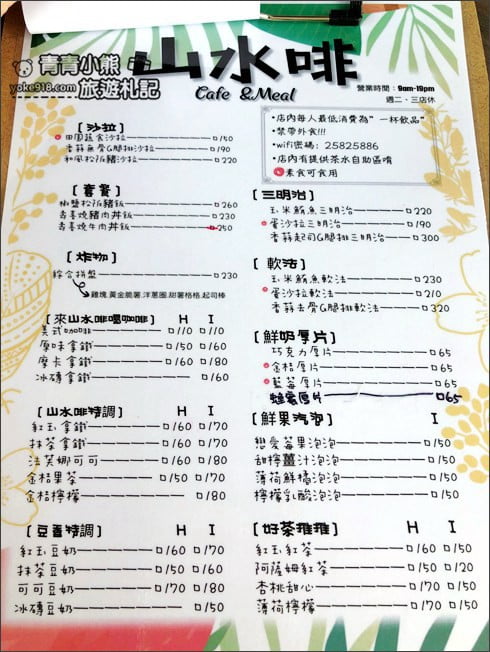 青青小熊
旅遊札記
yoke918.com
山水啡
Cafe & Meal
營業時間：9am-19pm
週二、三店休
•店內每人最低消費為"一杯飲品"
•禁帶外食!!!
•wifi密碼：25825886
•店內有提供茶水自助區唷
素食可食用
[沙拉]
田園蔬食沙拉 150
香蒜無骨G腿排沙拉 190
和風松阪豬沙拉 220
[套餐]
椒鹽松阪豬飯 260
壽喜燒豬肉丼飯 230
壽喜燒牛肉丼飯 250
[炸物]
綜合拼盤 230
雞塊,黃金脆薯,洋蔥圈,甜薯格格,起司棒
[來山水啡喝咖啡] H I
美式咖啡 110 110
原味拿鐵 150 160
摩卡拿鐵 160 180
冰磚拿鐵 160
[山水啡特調] H I
紅玉拿鐵 160 170
抹茶拿鐵 160 170
法芙娜可可 160 180
金桔果茶 150 170
金桔檸檬 180
[豆香特調] H I
紅玉豆奶 160 170
抹茶豆奶 150 160
可可豆奶 170 180
冰磚豆奶 150
[三明治]
玉米鮪魚三明治 220
蛋沙拉三明治 190
香蒜起司G腿排三明治 300
[軟法]
玉米鮪魚軟法 250
蛋沙拉軟法 210
香蒜去骨G腿排軟法 320
[鮮奶厚片]
巧克力厚片 65
金桔厚片 65
藍莓厚片 65
65
[鮮果汽泡] I
戀愛莓果泡泡 150
甜檸薑汁泡泡 150
薄荷鮮橘泡泡 150
檸檬乳酸泡泡 150
[好茶推推] H I
紅玉紅茶 160 150
阿薩姆紅茶 150 120
杏桃甜心 170 150
薄荷檸檬 170 150